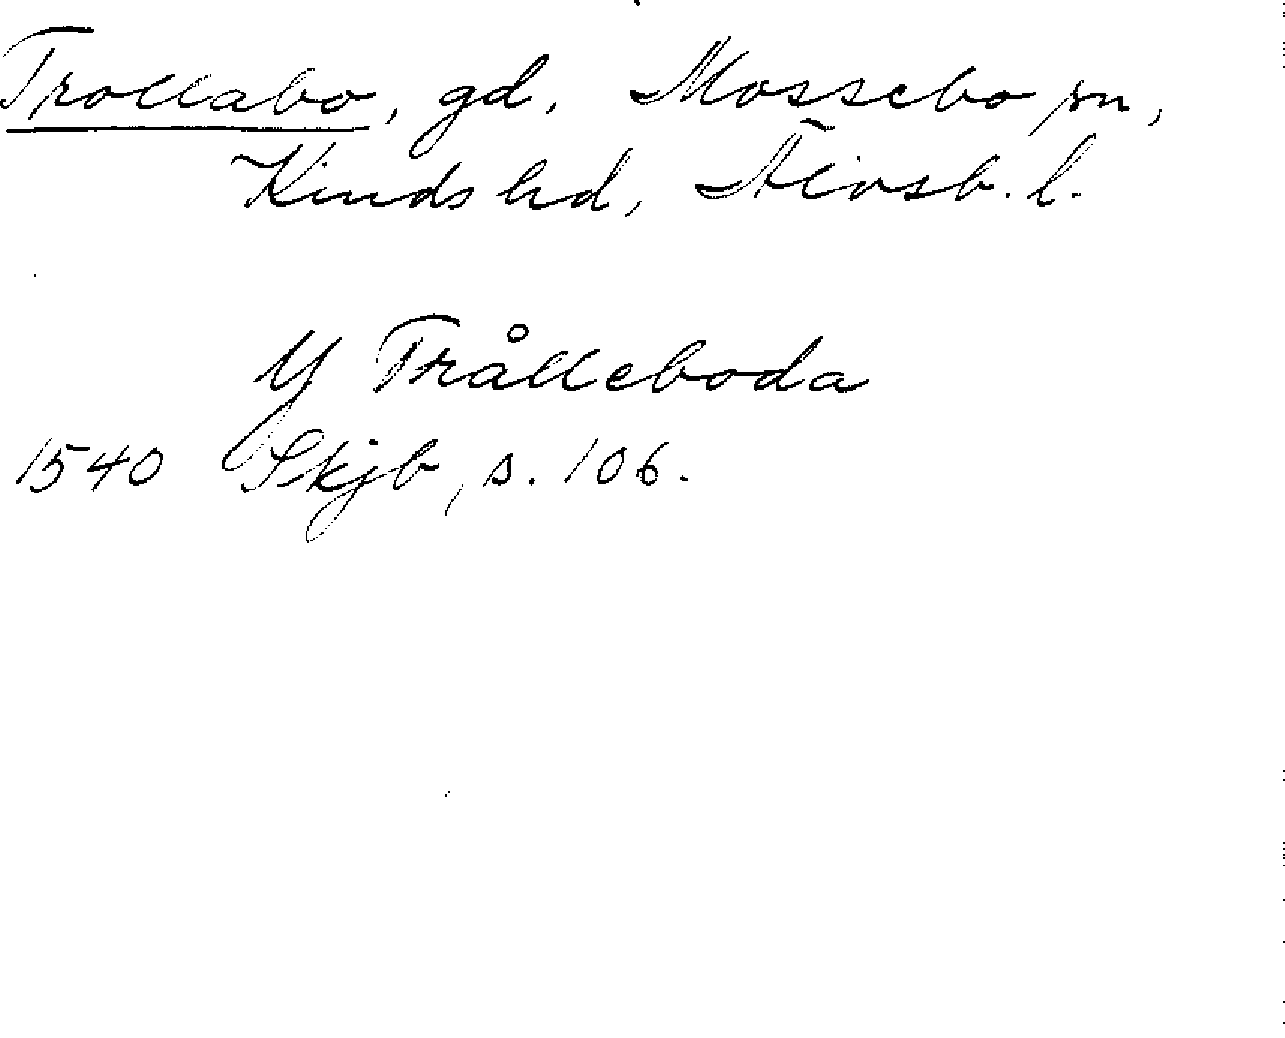 Trollabo, gd, Mossebo sn,
Kinds hd, Älvsb. l.
Y Trålleboda
1540 Skjb, s. 106.